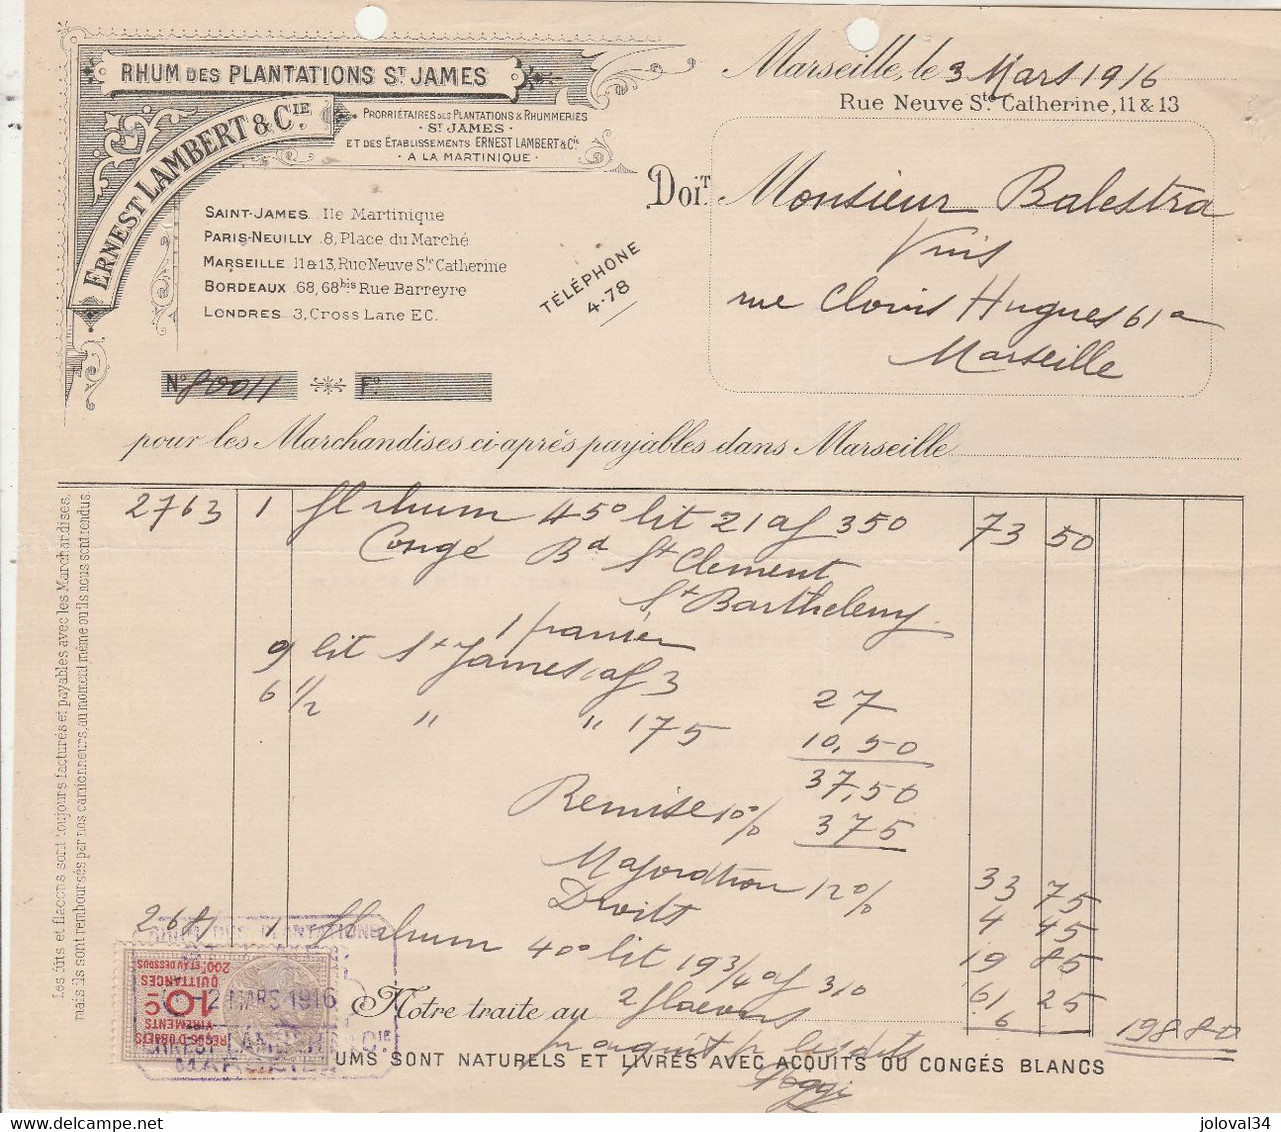 RHUM DES PLANTATIONS ST JAMES
ERNEST LAMBERT & CIE.
PROPRIÉTAIRES DES PLANTATIONS & RHUMMERIES
· ST JAMES ·
ET DES ETABLISSEMENTS ERNEST LAMBERT & Cie
· A LA MARTINIQUE ·
Marseille, le 3 Mars 1916
Rue Neuve Ste Catherine, 11 & 13
SAINT-JAMES Ile Martinique
PARIS-NEUILLY 8, Place du Marché
MARSEILLE 11 & 13, Rue Neuve Ste Catherine
BORDEAUX 68, 68 bis Rue Barreyre
LONDRES 3, Cross Lane EC.
TÉLÉPHONE
4-78
Doit Monsieur Balestra
Vins
rue Clovis Hugues 61a
Marseille
No 80011 Fo
pour les Marchandises ci-après payables dans Marseille
2763 1 fl rhum 45° lit 21 af 350 73 50
Congé Bd St Clement
St Barthelemy
1 panier
9 lit St James af 3 27
6 1/2 " " 175 10,50
37,50
Remise 10% 375
33 75
Majoration 12% 4 45
Droits 19 85
2681 1 fl rhum 40° lit 19 3/4 af 310 61 25
2 flacons 6
198 80
Notre traite au
pr acquit pr
Poggi
RHUMS SONT NATURELS ET LIVRÉS AVEC ACQUITS OU CONGÉS BLANCS
Les fûts et flacons sont toujours facturés et payables avec les Marchandises,
mais ils sont remboursés par nos camionneurs, au moment même où ils nous sont rendus.
RHUM DES PLANTATIONS
-2 MARS 1916
ERNEST LAMBERT & CIE
MARSEILLE
REÇUS D'OBJETS
VIREMENTS
10c
QUITTANCES
200F ET AU DESSOUS
joloval34